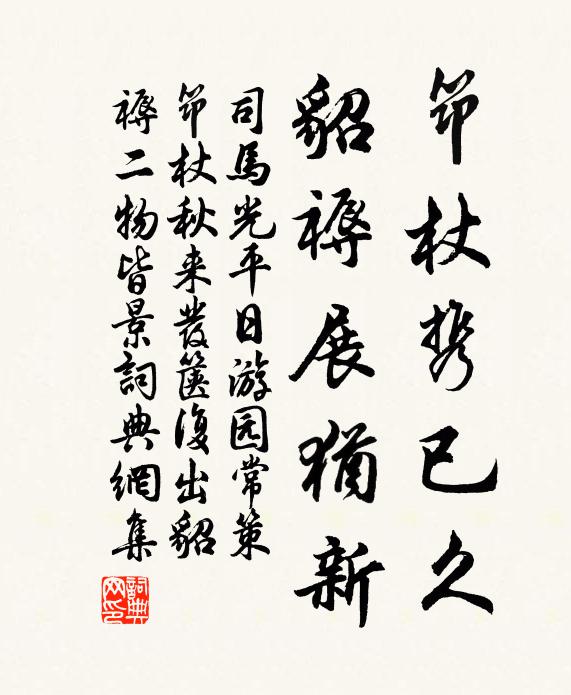 筇杖携已久
貂褥展犹新
司馬光平日游园常策
筇杖秋来發篋復出貂
褥二物皆景詞典網集
詞典网印